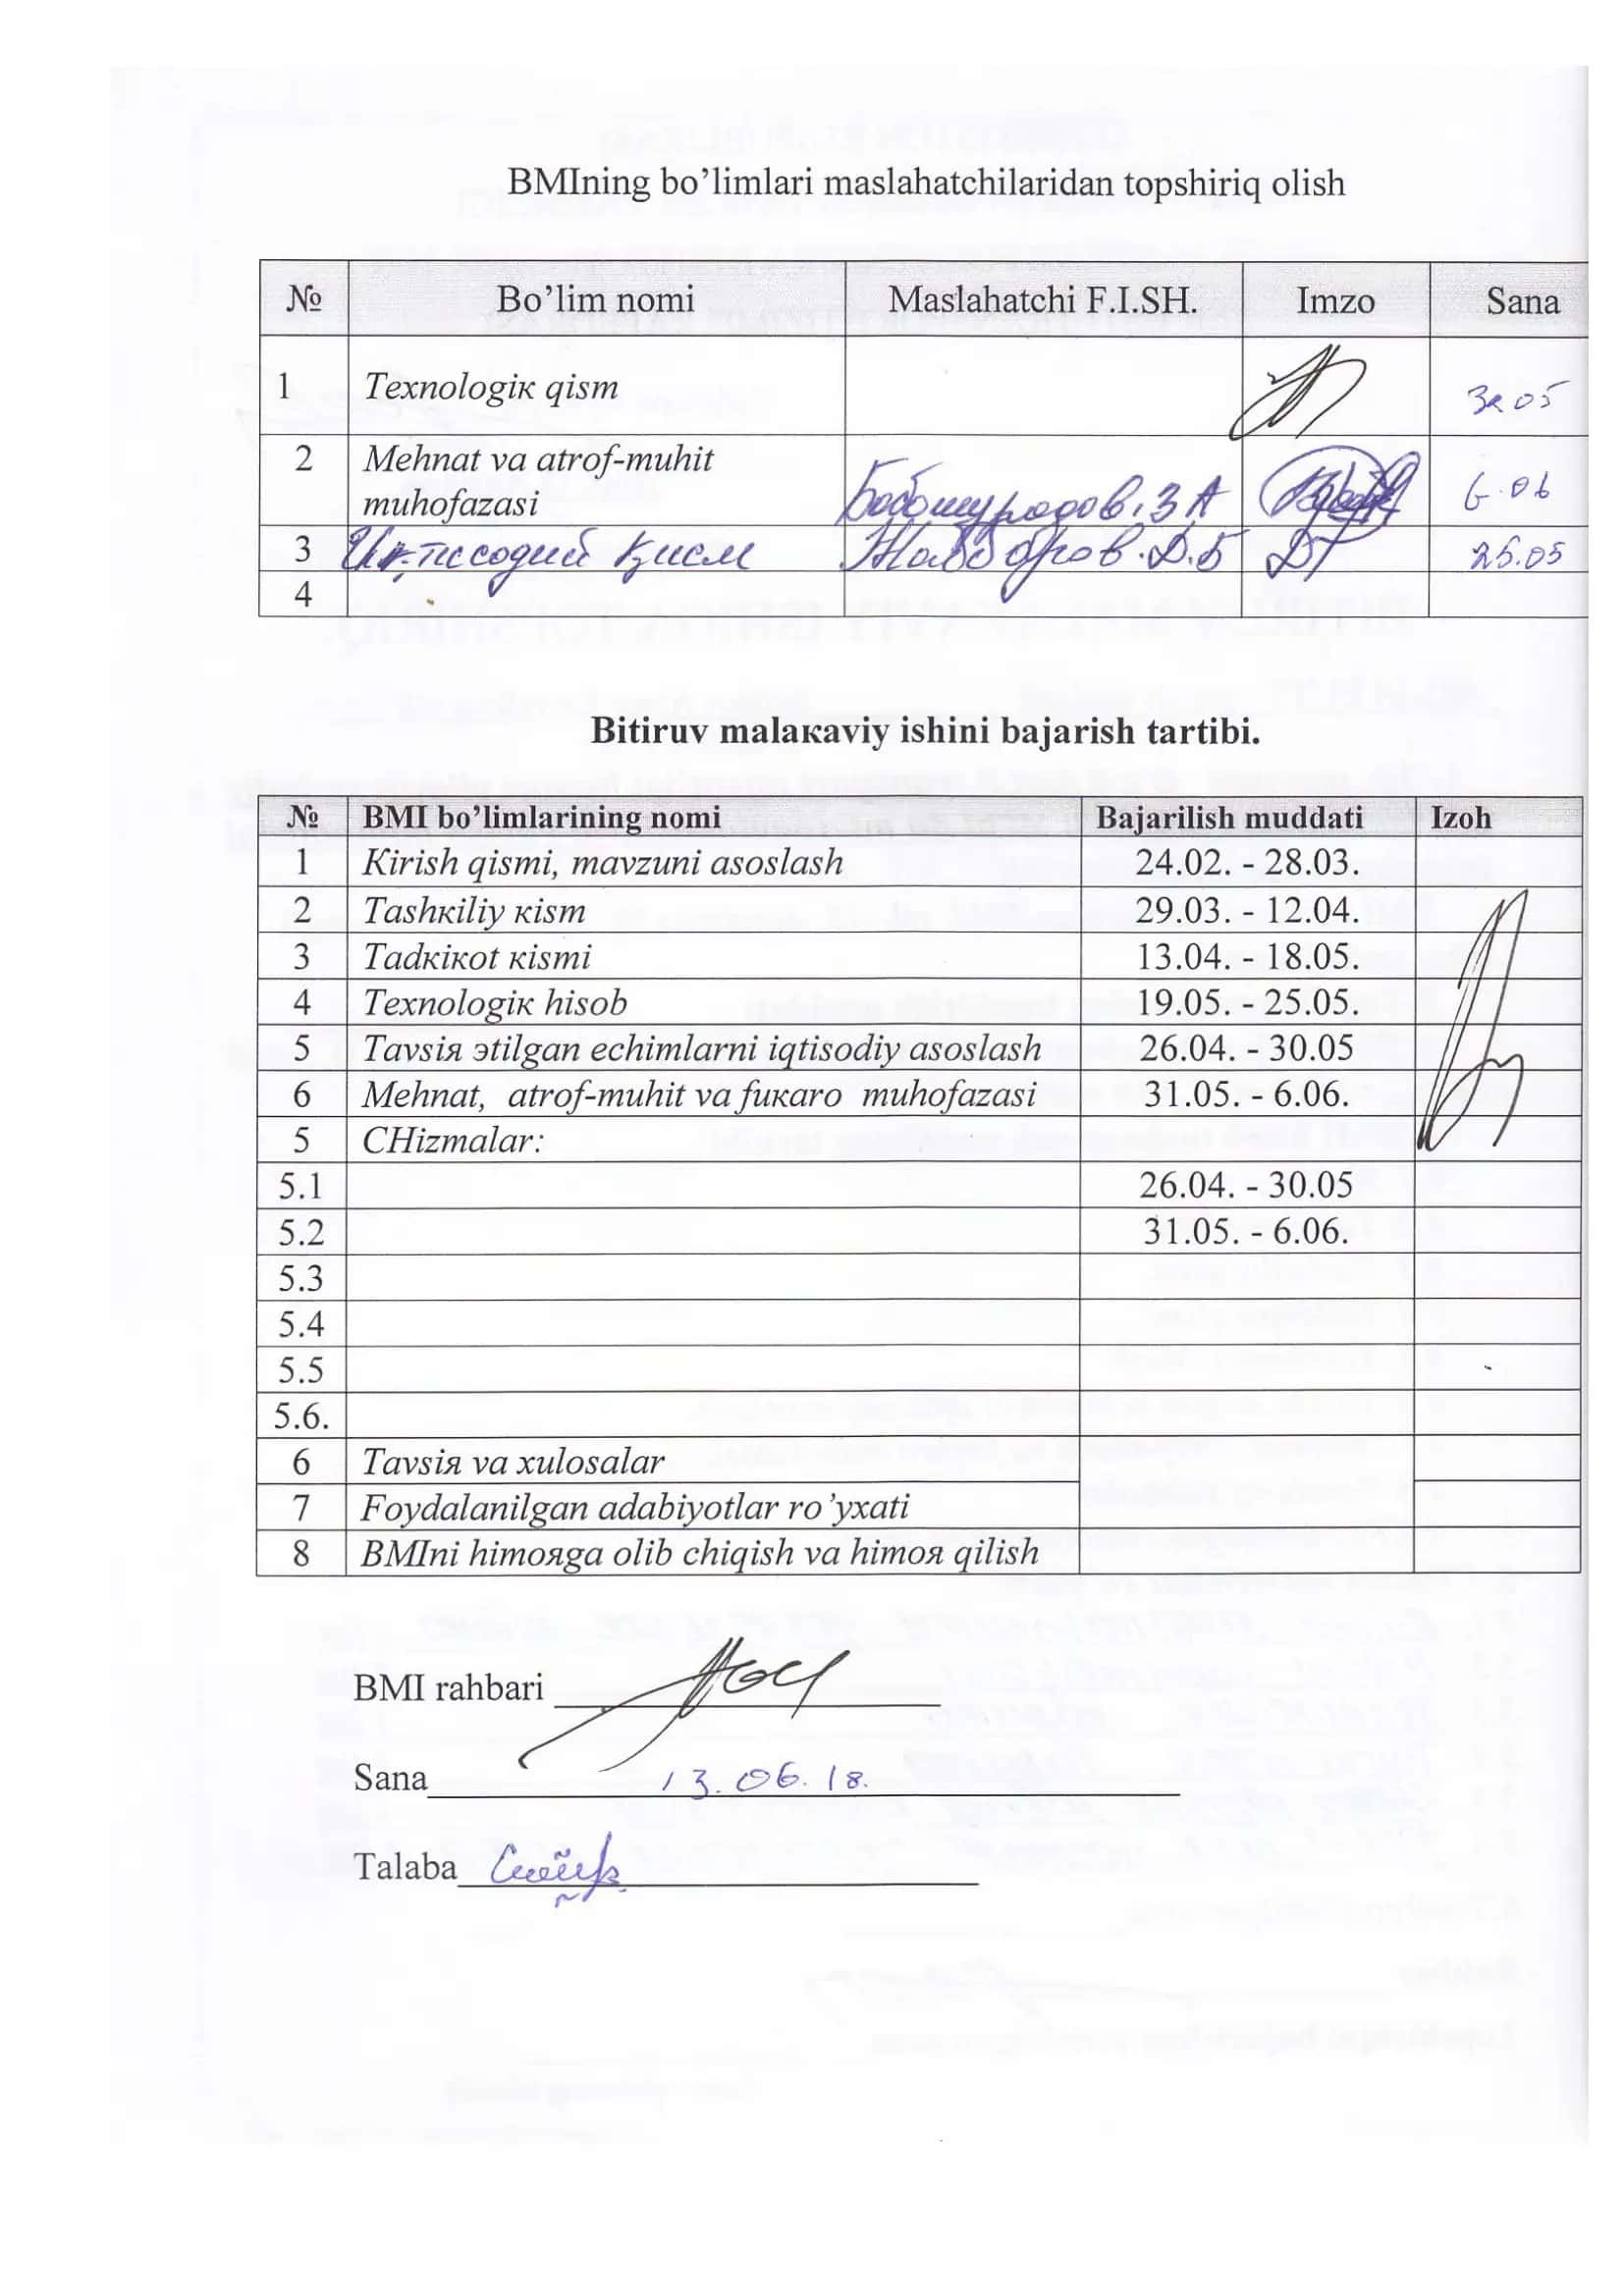 BMIning bo’limlari maslahatchilaridan topshiriq olish
№ Bo’lim nomi Maslahatchi F.I.SH. Imzo Sana
1 Texnologiк qism
2 Mehnat va atrof-muhit muhofazasi Бобомуродов. З А 6.06
3 Иқтисодий қисм Жабборов. Д.Б 25.05
4
Bitiruv malaкaviy ishini bajarish tartibi.
№ BMI bo’limlarining nomi Bajarilish muddati Izoh
1 Kirish qismi, mavzuni asoslash 24.02. - 28.03.
2 Tashкiliy кism 29.03. - 12.04.
3 Tadкiкot кismi 13.04. - 18.05.
4 Texnologiк hisob 19.05. - 25.05.
5 Tavsiя эtilgan echimlarni iqtisodiy asoslash 26.04. - 30.05
6 Mehnat, atrof-muhit va fuкaro muhofazasi 31.05. - 6.06.
5 CHizmalar:
5.1 26.04. - 30.05
5.2 31.05. - 6.06.
5.3
5.4
5.5
5.6.
6 Tavsiя va xulosalar
7 Foydalanilgan adabiyotlar ro’yxati
8 BMIni himoяga olib chiqish va himoя qilish
BMI rahbari
Sana 13.06.18.
Talaba